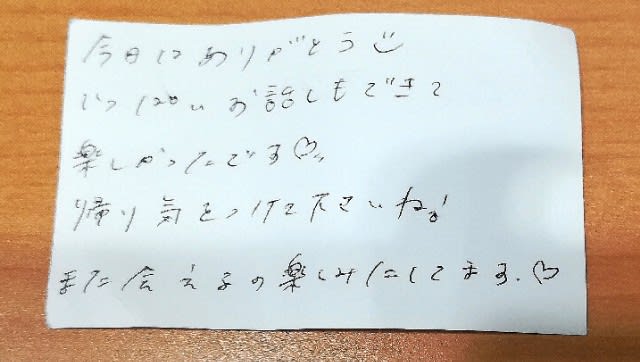 今日はありがとう
いっぱいお話しもできて
楽しかったです♡
帰り気をつけて下さいね!
また会えるの楽しみにしてます.♡